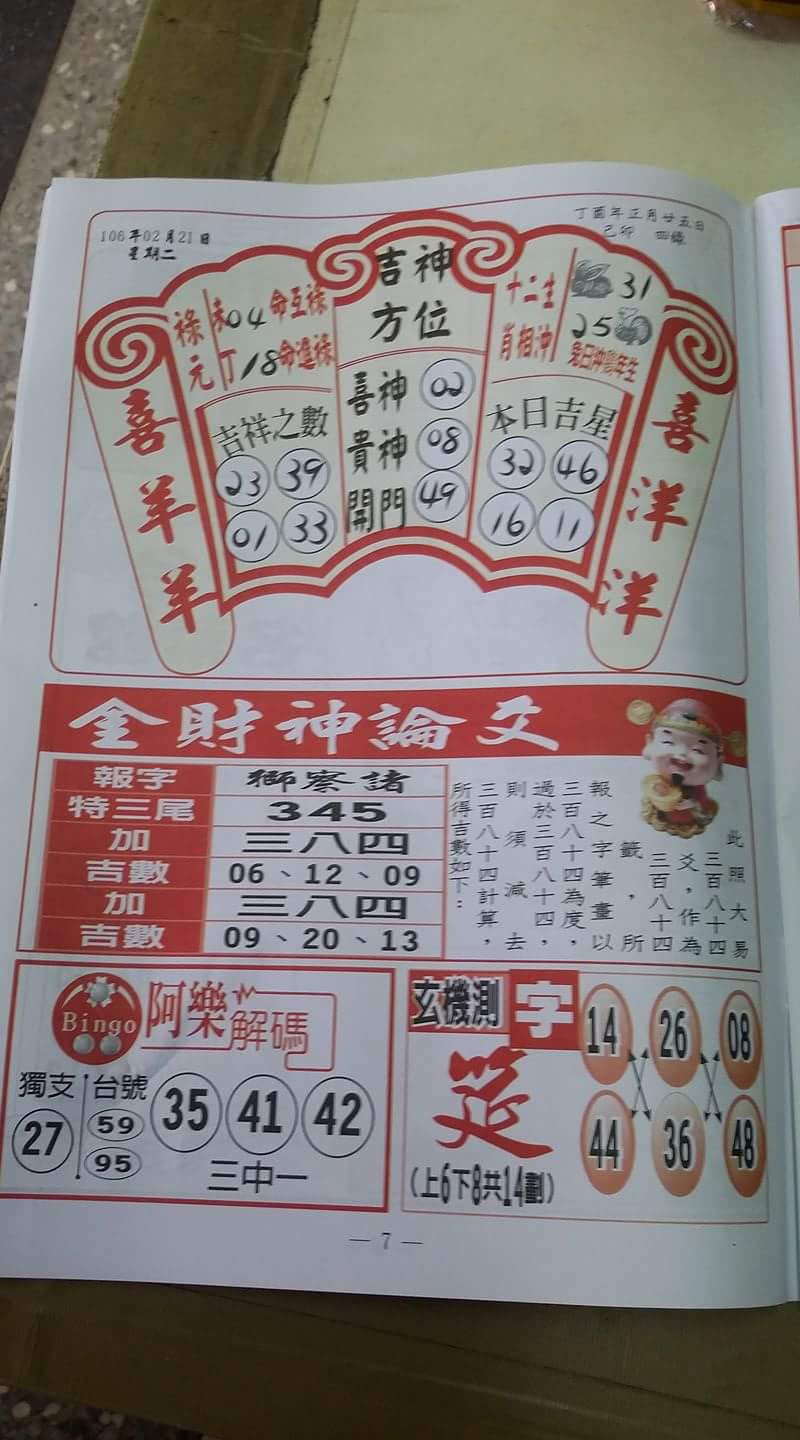 106年02月21日
星期二
丁酉年正月廿五日
己卯 四綠
吉神
方位
祿元
未04命互祿
丁18命進祿
十二生
肖相沖
31
25
兔日沖雞年生
喜羊羊
吉祥之數
23 39
01 33
喜神 02
貴神 08
開門 49
本日吉星
32 46
16 11
喜洋洋
金財神論爻
報字 獅察諸
特三尾 345
加 三八四
吉數 06、12、09
加 三八四
吉數 09、20、13
此照大易
三百八十四
爻,作為
三百八十四
籤,所
報之字筆畫以
三百八十四為度,
過於三百八十四,
則須減去
三百八十四計算,
所得吉數如下:
Bingo 阿樂解碼
獨支 27
台號 59 95
35 41 42
三中一
玄機測字
筵
(上6下8共14劃)
14 26 08
44 36 48
— 7 —